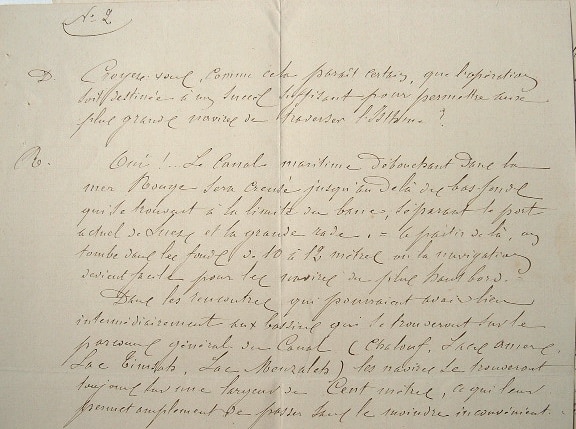 No 2
D. Croyez-vous, comme cela paraît certain, que l'opération
soit destinée à un succès suffisant pour permettre aux
plus grands navires de traverser l'Isthme ?
R. Oui !... Le Canal maritime débouchant dans la
mer Rouge sera creusé jusqu'au delà des bas fonds
qui se trouvent à la limite du banc, séparant le port
actuel de Suez et la grande rade. = à partir de là, on
tombe dans les fonds de 10 à 12 mètres où la navigation
devient facile pour les navires du plus haut bord. =
Dans les rencontres qui pourraient avoir lieu
intermédiairement aux bassins qui se trouveront sur le
parcours général du Canal (Chalouf, Lacs amers,
Lac Timsah, Lac Menzaleh) les navires se trouveront
toujours sur une largeur de Cent mètres, ce qui leur
permet amplement de passer sans le moindre inconvénient. -